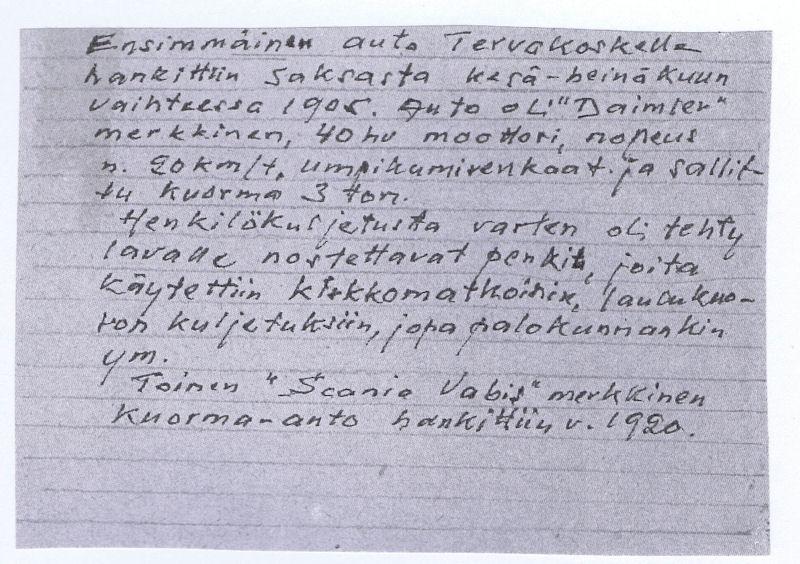 Ensimmäinen auto Tervakoskelle
hankittiin Saksasta kesä-heinäkuun
vaihteessa 1905. Auto oli "Daimler"
merkkinen, 40 hv moottori, nopeus
n. 20 km/t, umpikumirenkaat ja sallit-
tu kuorma 3 ton.
Henkilökuljetusta varten oli tehty
lavalle nostettavat penkit, joita
käytettiin kirkkomatkoihin, laulukuo-
ron kuljetuksiin, jopa palokunnankin
ym.
Toinen "Scania Vabis" merkkinen
kuorma-auto hankittiin v. 1920.